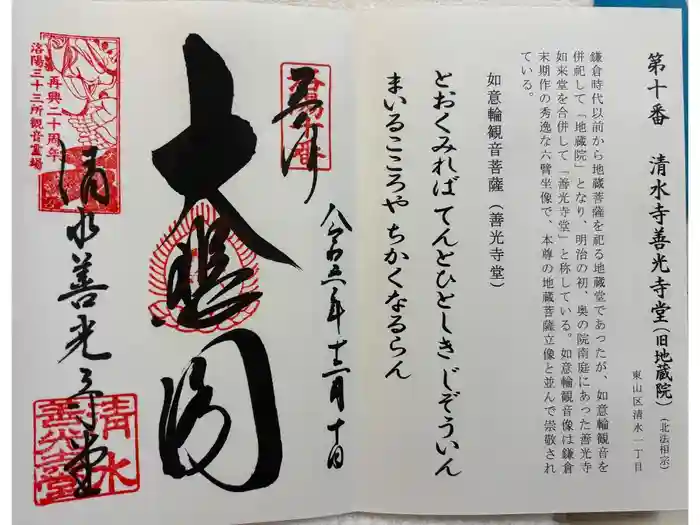 第十番 清水寺善光寺堂(旧地蔵院)(北法相宗)
東山区清水一丁目
鎌倉時代以前から地蔵菩薩を祀る地蔵堂であったが、如意輪観音を
併祀して「地蔵院」となり、明治の初、奥の院南庭にあった善光寺
如来堂を合併して「善光寺堂」と称している。如意輪観音像は鎌倉
末期作の秀逸な六臂坐像で、本尊の地蔵菩薩立像と並んで崇敬され
ている。
如意輪観音菩薩(善光寺堂)
とおくみれば てんとひとしき じぞういん
まいるこころや ちかくなるらん
奉拝
洛陽十番
令和五年十二月十日
大悲閣
清水善光寺堂
再興二十周年
洛陽三十三所観音霊場
清水
善光寺堂